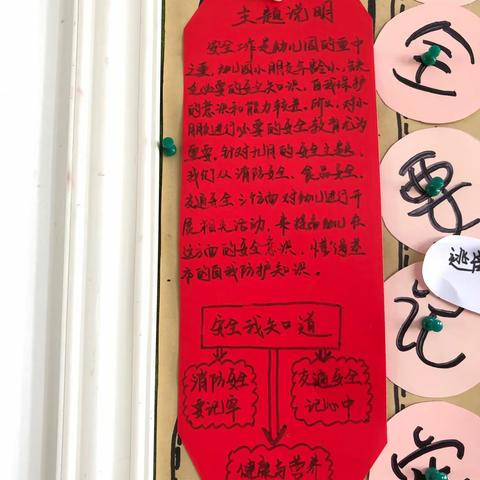 主题说明
安全工作是幼儿园的重中
之重，幼儿园小朋友年龄小，缺
乏必要的安全知识，自我保护
的意识和能力较差。所以，对小
朋友进行必要的安全教育尤为
重要。针对九月的安全主题，
我们从消防安全、食品安全、
交通安全三个方面对幼儿进行开
展相关活动，来提高幼儿在
这方面的安全意识，懂得基
本的自我防护知识。
安全我知道
消防安全
要记牢
交通安全
记心中
健康与营养
全
要
记
逃生